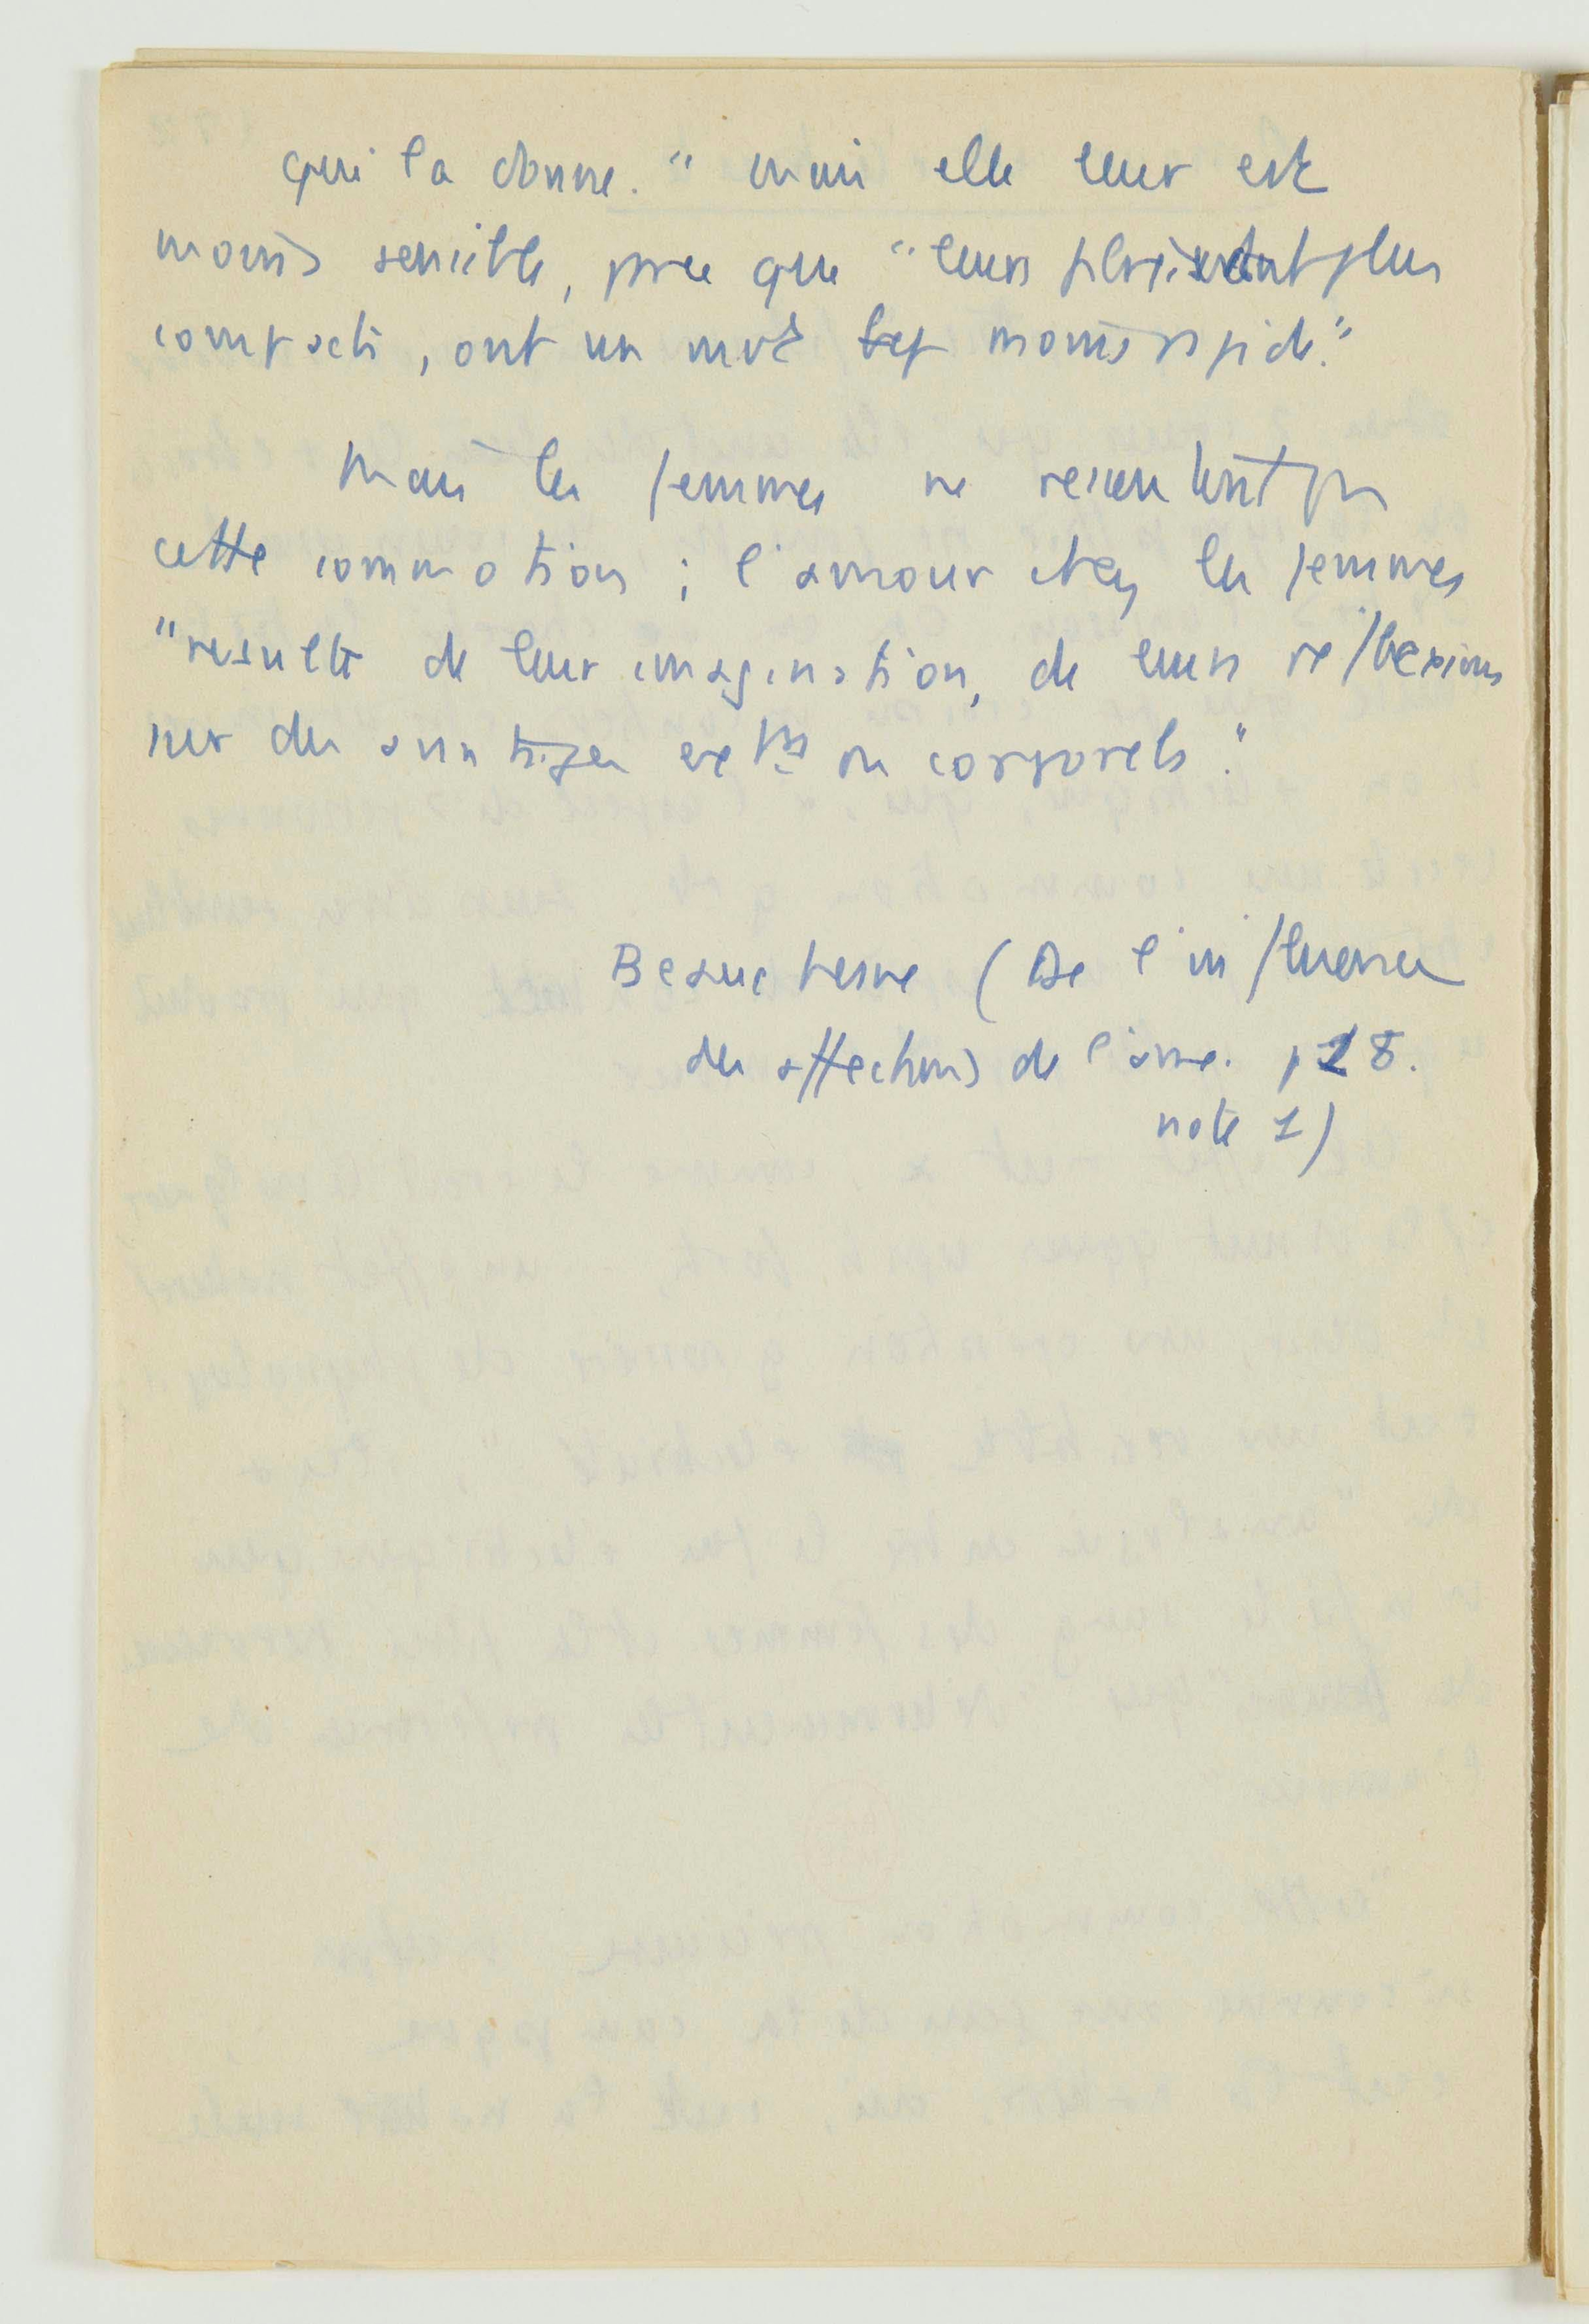 qui la donne." mais elle leur est
moins sensible, parce que "leurs plus
compacts, ont un mvt moins rapide."
Mais les femmes ne ressentent pas
cette commotion ; l'amour chez les femmes
"resulte de leur imagination, de leurs reflexions
sur des avantages ou corporels."
Beauchesne (De l'influence
des affections de l'ame. p 28.
note 1)